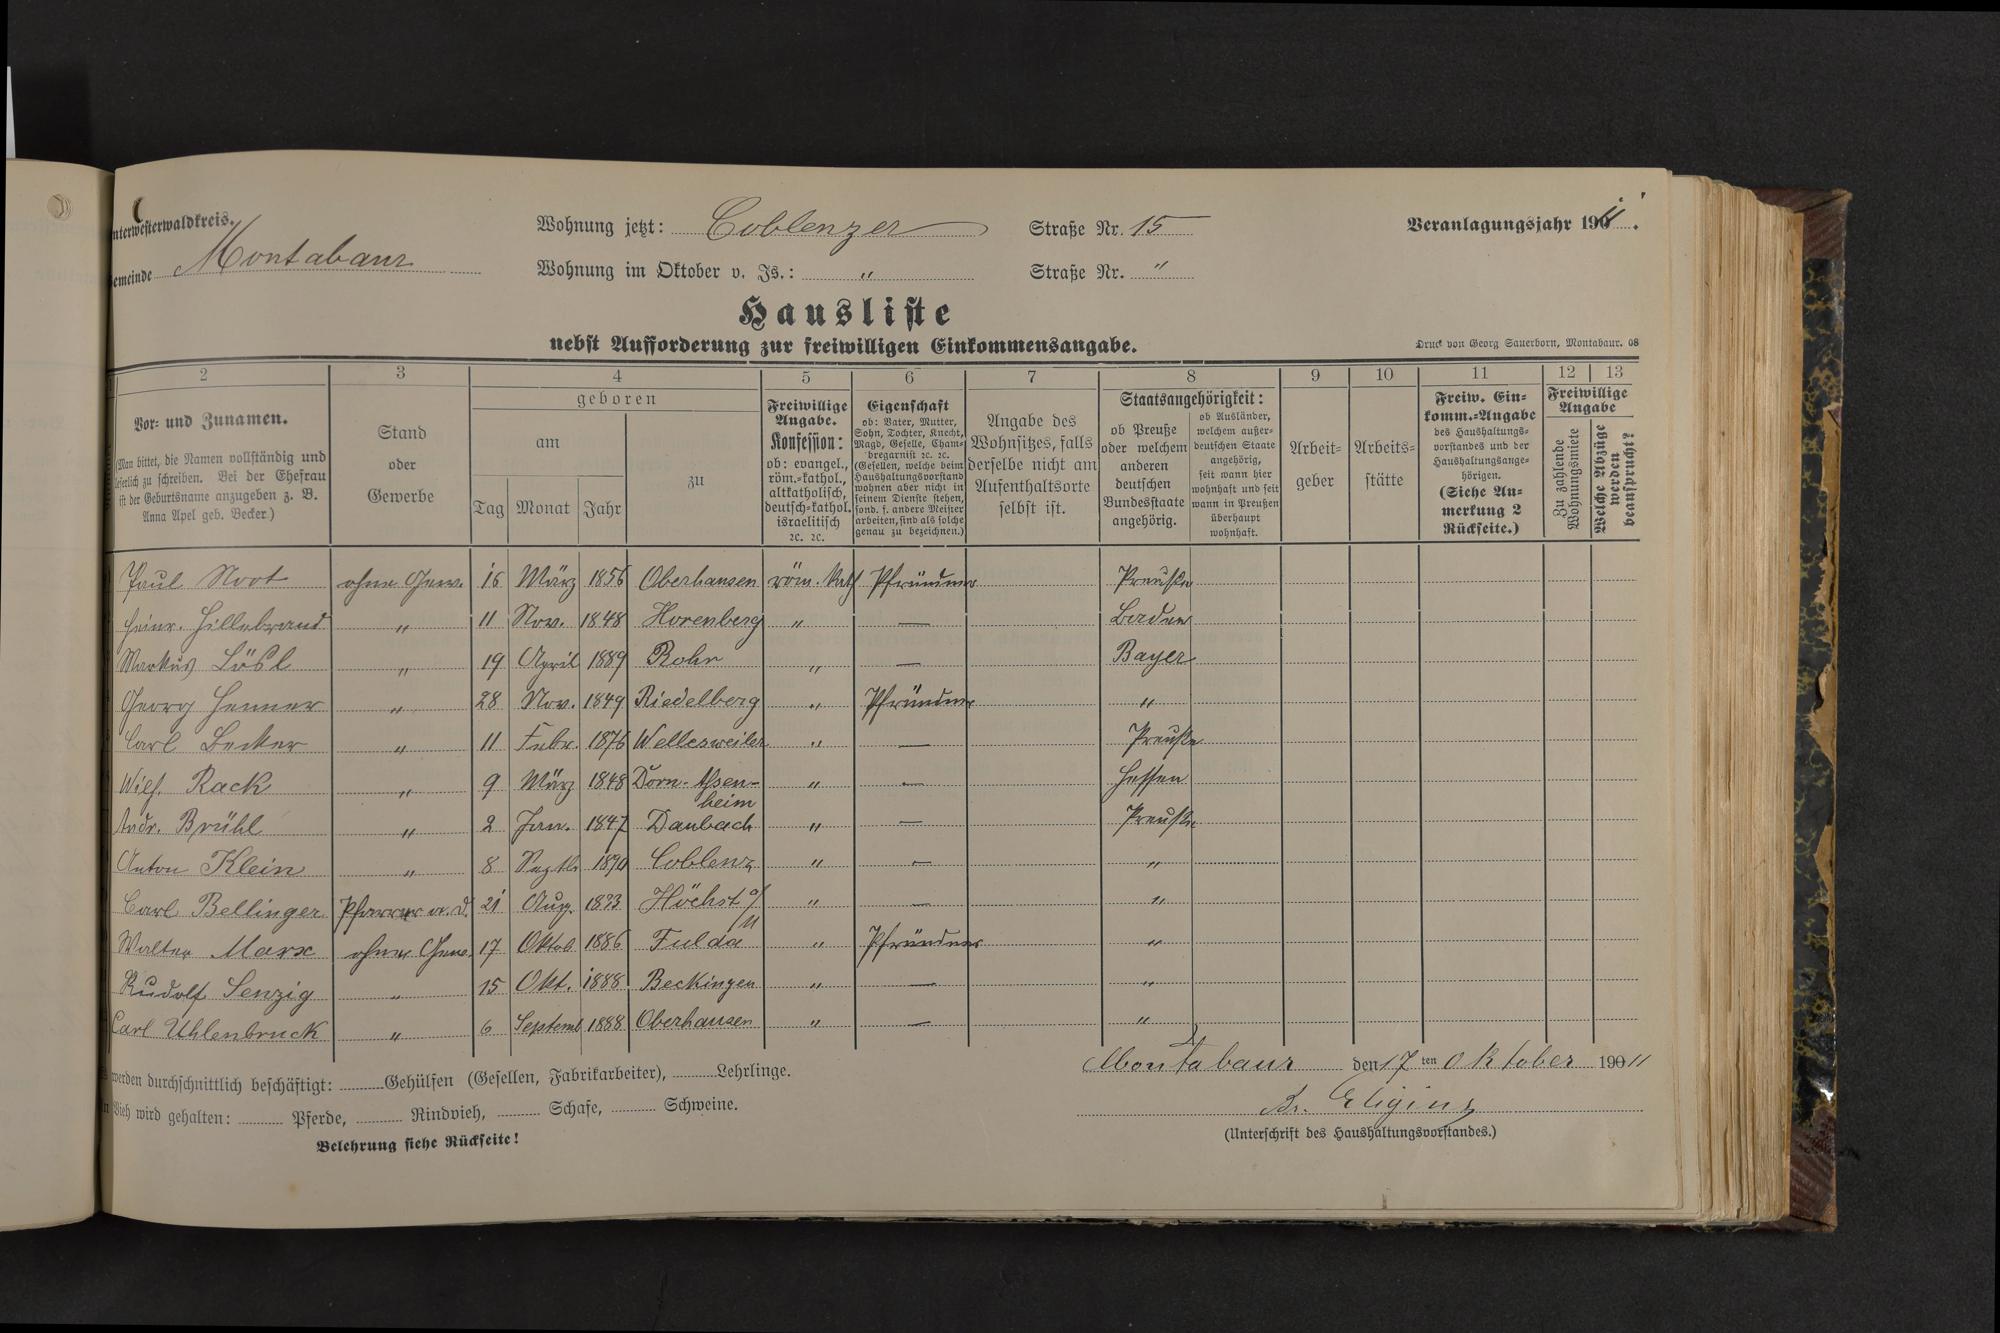 Unterwesterwaldkreis.
Gemeinde Montabaur
Wohnung jetzt: Coblenzer Straße Nr. 15
Wohnung im Oktober v. Js.: " Straße Nr. "
Veranlagungsjahr 1911.
Hausliste
nebst Aufforderung zur freiwilligen Einkommensangabe.
Druck von Georg Sauerborn, Montabaur. 08
2 3 4 5 6 7 8 9 10 11 12 13
Vor- und Zunamen.
(Man bittet, die Namen vollständig und
leserlich zu schreiben. Bei der Ehefrau
ist der Geburtsname anzugeben z. B.
Anna Apel geb. Becker.)
Stand
oder
Gewerbe
geboren
am
Tag Monat Jahr
zu
Freiwillige
Angabe.
Konfession:
ob: evangel.,
röm.-kathol.,
altkatholisch,
deutsch-kathol.
israelitisch
ꝛc. ꝛc.
Eigenschaft
ob: Vater, Mutter,
Sohn, Tochter, Knecht,
Magd, Geselle, Cham-
bregarnist ꝛc. ꝛc.
(Gesellen, welche beim
Haushaltungsvorstand
wohnen aber nicht in
seinem Dienste stehen,
sond. f. andere Meister
arbeiten, sind als solche
genau zu bezeichnen.)
Angabe des
Wohnsitzes, falls
derselbe nicht am
Aufenthaltsorte
selbst ist.
Staatsangehörigkeit:
ob Preuße
oder welchem
anderen
deutschen
Bundesstaate
angehörig.
ob Ausländer,
welchem außer-
deutschen Staate
angehörig,
seit wann hier
wohnhaft und seit
wann in Preußen
überhaupt
wohnhaft.
Arbeit-
geber
Arbeits-
stätte
Freiw. Ein-
komm.-Angabe
des Haushaltungs-
vorstandes und der
Haushaltungsange-
hörigen.
(Siehe An-
merkung 2
Rückseite.)
Freiwillige
Angabe
Zu zahlende
Wohnungsmiete
Welche Abzüge
werden
beansprucht?
Paul Noot ohne Gew. 16 März 1856 Oberhausen röm. Kath Pfründner Preuße
Heinr. Hillebrand " 11 Nov. 1848 Horenberg " — Baden
Markus Lösl " 19 April 1889 Rohr " — Bayer
Georg Henner " 28 Nov. 1849 Riedelberg " Pfründner "
Carl Becker " 11 Febr. 1876 Wellesweiler " — Preuße
Wilh. Rack " 9 März 1848 Dorn-Assen-
heim " — Hessen
Andr. Brühl " 2 Jan. 1847 Daubach " — Preuße
Anton Klein " 8 Septb. 1890 Coblenz " — "
Carl Bellinger Pfarrer a. D. 21 Aug. 1833 Höchst a/
M " "
Walter Marx ohne Gew. 17 Oktob. 1886 Fulda " Pfründner "
Rudolf Senzig " 15 Okt. 1888 Beckingen " — "
Carl Uhlenbruck " 6 Septemb 1888 Oberhausen " — "
werden durchschnittlich beschäftigt: Gehülfen (Gesellen, Fabrikarbeiter), Lehrlinge.
Vieh wird gehalten: Pferde, Rindvieh, Schafe, Schweine.
Belehrung siehe Rückseite!
Montabaur den 17ten Oktober 1911
Br. Eligius
(Unterschrift des Haushaltungsvorstandes.)